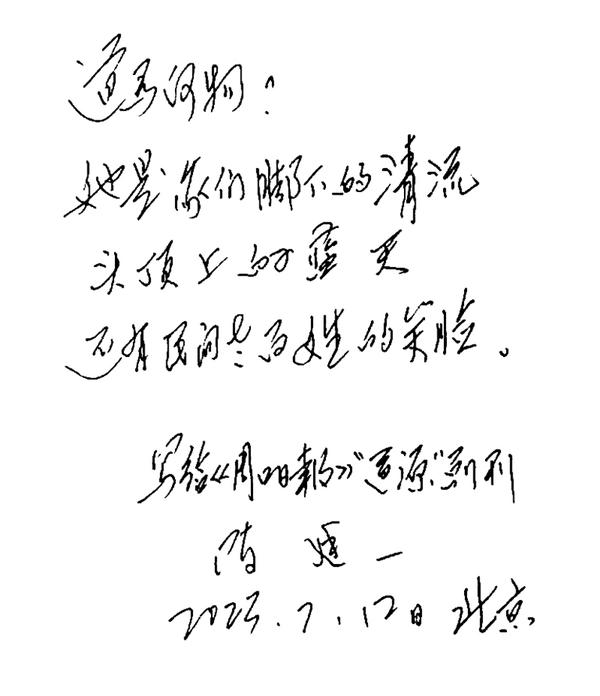 道为何物?
她是我们脚下的清流
头顶上的蓝天
还有民间老百姓的笑脸。
写给《周口日报》"道源"副刊
陈建一
2025.7.12日 北京